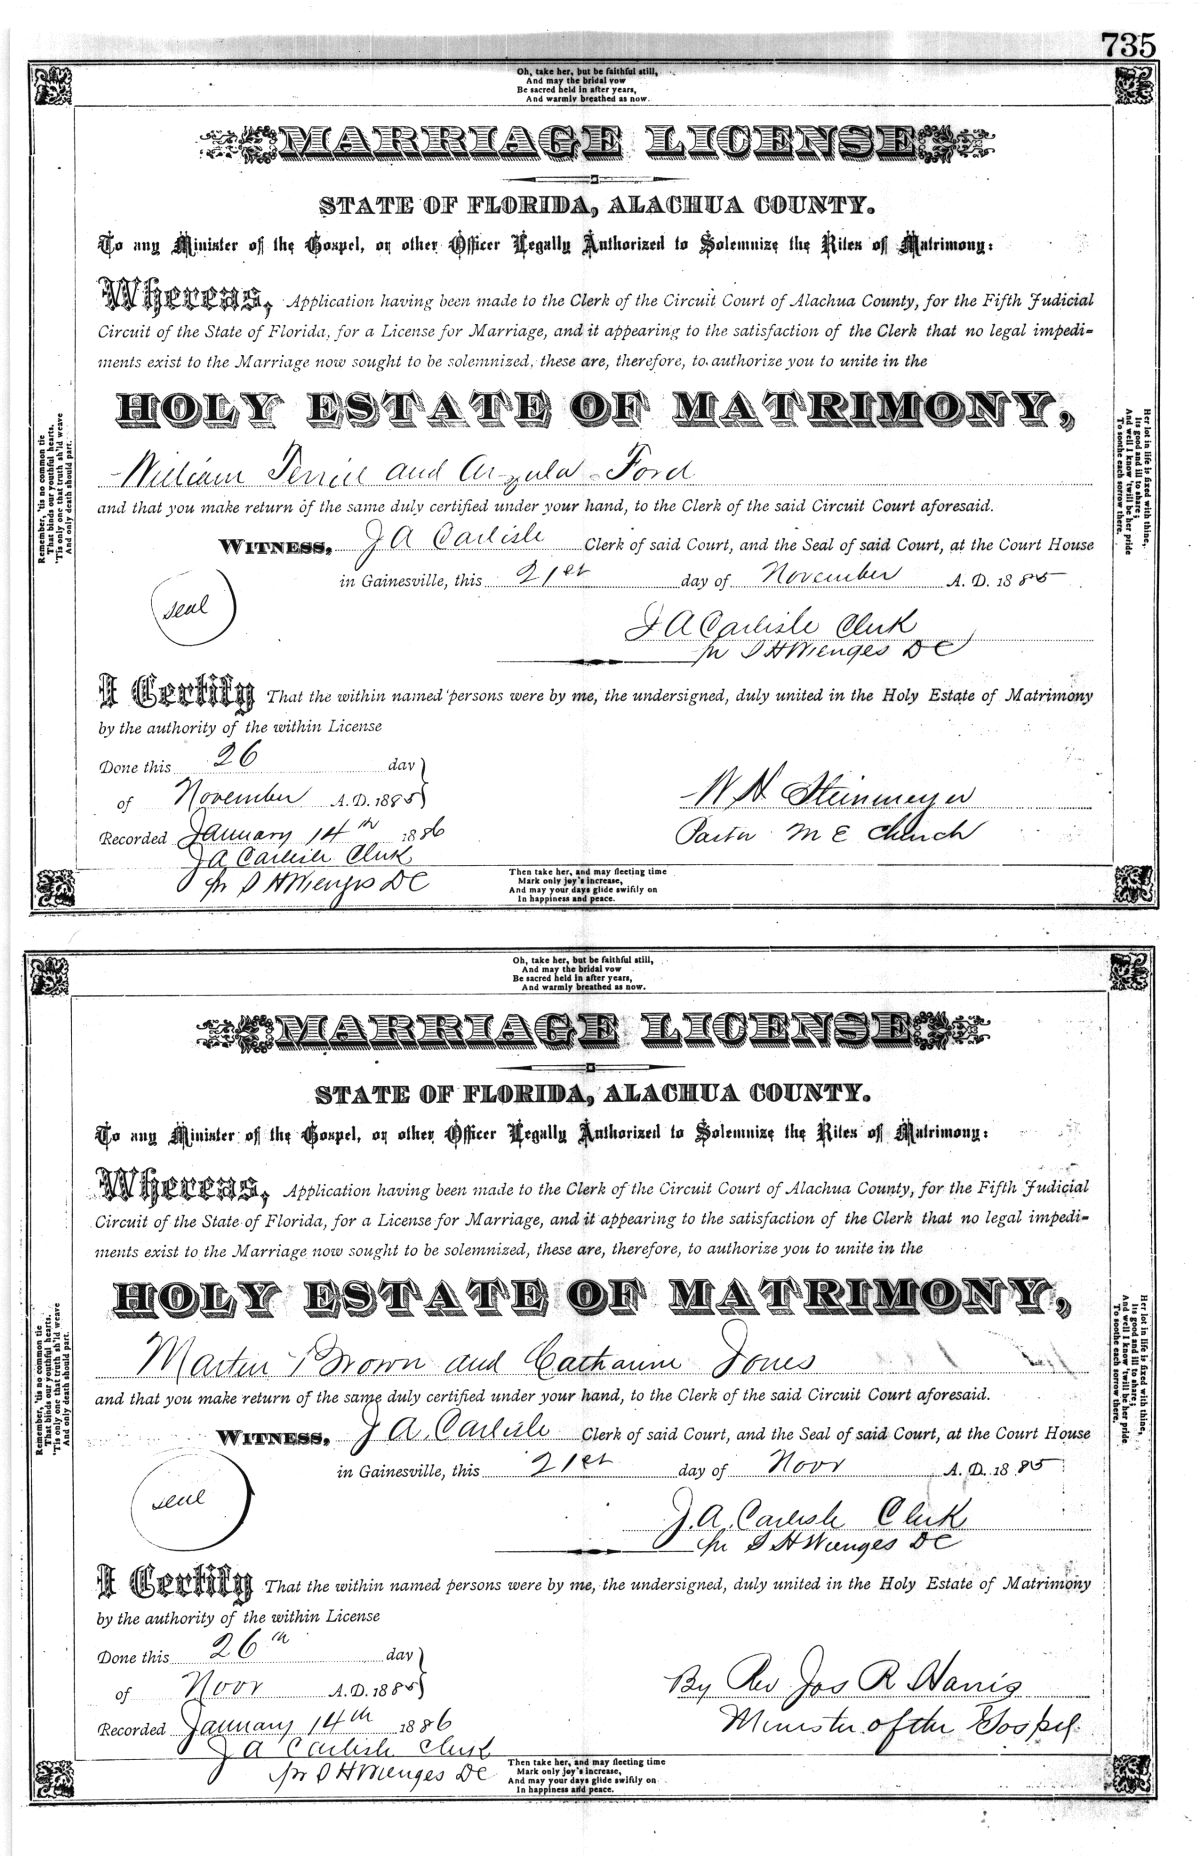 735
Oh, take her, but be faithful still,
And may the bridal vow
Be sacred held in after years,
And warmly breathed as now.
MARRIAGE LICENSE
STATE OF FLORIDA, ALACHUA COUNTY.
To any Minister of the Gospel, or other Officer Legally Authorized to Solemnize the Rites of Matrimony:
Whereas, Application having been made to the Clerk of the Circuit Court of Alachua County, for the Fifth Judicial
Circuit of the State of Florida, for a License for Marriage, and it appearing to the satisfaction of the Clerk that no legal impedi-
ments exist to the Marriage now sought to be solemnized, these are, therefore, to authorize you to unite in the
HOLY ESTATE OF MATRIMONY,
William Terrill and Arzula Ford
and that you make return of the same duly certified under your hand, to the Clerk of the said Circuit Court aforesaid.
WITNESS, J A Carlisle Clerk of said Court, and the Seal of said Court, at the Court House
in Gainesville, this 21st day of November A. D. 1885
seal
J A Carlisle Clerk
pr S H Wienges DC
I Certify That the within named persons were by me, the undersigned, duly united in the Holy Estate of Matrimony
by the authority of the within License
Done this 26 day
of November A. D. 1885
W H Steinmeyer
Recorded January 14th 1886
Pastor M E Church
J A Carlisle Clerk
pr S H Wienges DC
Then take her, and may fleeting time
Mark only joy's increase,
And may your days glide swiftly on
In happiness and peace.
Remember, 'tis no common tie
That binds our youthful hearts.
'Tis only one that truth sh'ld weave
And only death should part.
Her lot in life is fixed with thine,
Its good and ill to share;
And well I know 'twill be her pride
To soothe each sorrow there.
Oh, take her, but be faithful still,
And may the bridal vow
Be sacred held in after years,
And warmly breathed as now.
MARRIAGE LICENSE
STATE OF FLORIDA, ALACHUA COUNTY.
To any Minister of the Gospel, or other Officer Legally Authorized to Solemnize the Rites of Matrimony:
Whereas, Application having been made to the Clerk of the Circuit Court of Alachua County, for the Fifth Judicial
Circuit of the State of Florida, for a License for Marriage, and it appearing to the satisfaction of the Clerk that no legal impedi-
ments exist to the Marriage now sought to be solemnized, these are, therefore, to authorize you to unite in the
HOLY ESTATE OF MATRIMONY,
Martin Brown and Catharine Jones
and that you make return of the same duly certified under your hand, to the Clerk of the said Circuit Court aforesaid.
WITNESS, J A. Carlisle Clerk of said Court, and the Seal of said Court, at the Court House
in Gainesville, this 21st day of Novr A. D. 1885
seal
J. A. Carlisle Clerk
pr S H Wienges DC
I Certify That the within named persons were by me, the undersigned, duly united in the Holy Estate of Matrimony
by the authority of the within License
Done this 26th day
of Novr A. D. 1885
By Rev Jos R Harris
Recorded January 14th 1886
Minister of the Gospel
J A Carlisle Clerk
pr S H Wienges DC
Then take her, and may fleeting time
Mark only joy's increase,
And may your days glide swiftly on
In happiness and peace.
Remember, 'tis no common tie
That binds our youthful hearts.
'Tis only one that truth sh'ld weave
And only death should part.
Her lot in life is fixed with thine,
Its good and ill to share;
And well I know 'twill be her pride
To soothe each sorrow there.